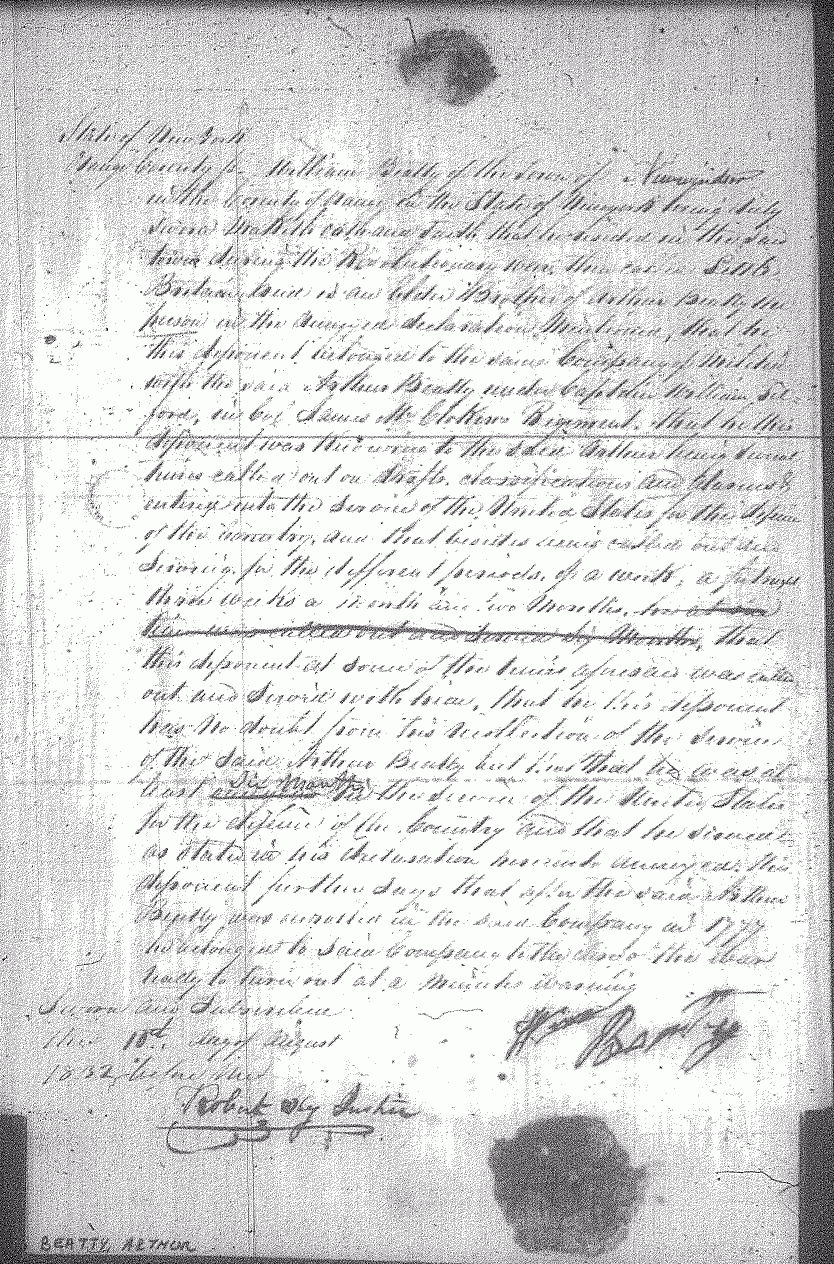 State of New York
Orange County ss. William Beatty of the Town of Newwindsor
in the County of Orange in the State of Newyork being duly
sworn Maketh oath and saith that he resided in the said
town during the Revolutionary war, then called Little
Britain, and is an Older Brother of Arthur Beatty the
person in the annexed declaration Mentioned, that he
this deponent belonged to the same Company of Militia
with the said Arthur Beatty under Captain William Tel-
ford, in Col James Mc Clokeys Regiment. that he this
deponent was knowing to the said Arthur being several
times called out on drafts, classifications and
entering into the service of the United States for the defence
of the Country, and that besides being called out and
serving for the different periods, of a week, a fortnight
three weeks a month and two Months, he at one
time was called out and served six Months, that
this deponent at some of the times aforesaid was called
out and served with him, that he this deponent
has no doubt from his recollection of the service
of the said Arthur Beatty but that he was at
least Six Months in the service of the United States
for the defence of the Country and that he served
as stated in his declaration hereunto annexed. this
deponent further says that after the said Arthur
Beatty was enrolled in the said Company in 1777
he belonged to said Company to the close of the war
ready to turn out at a minutes warning
Sworn and Subscribed
this 18th day of August
1832, before me
Wm Beatty
Robert Justice
BEATTY, ARTHUR